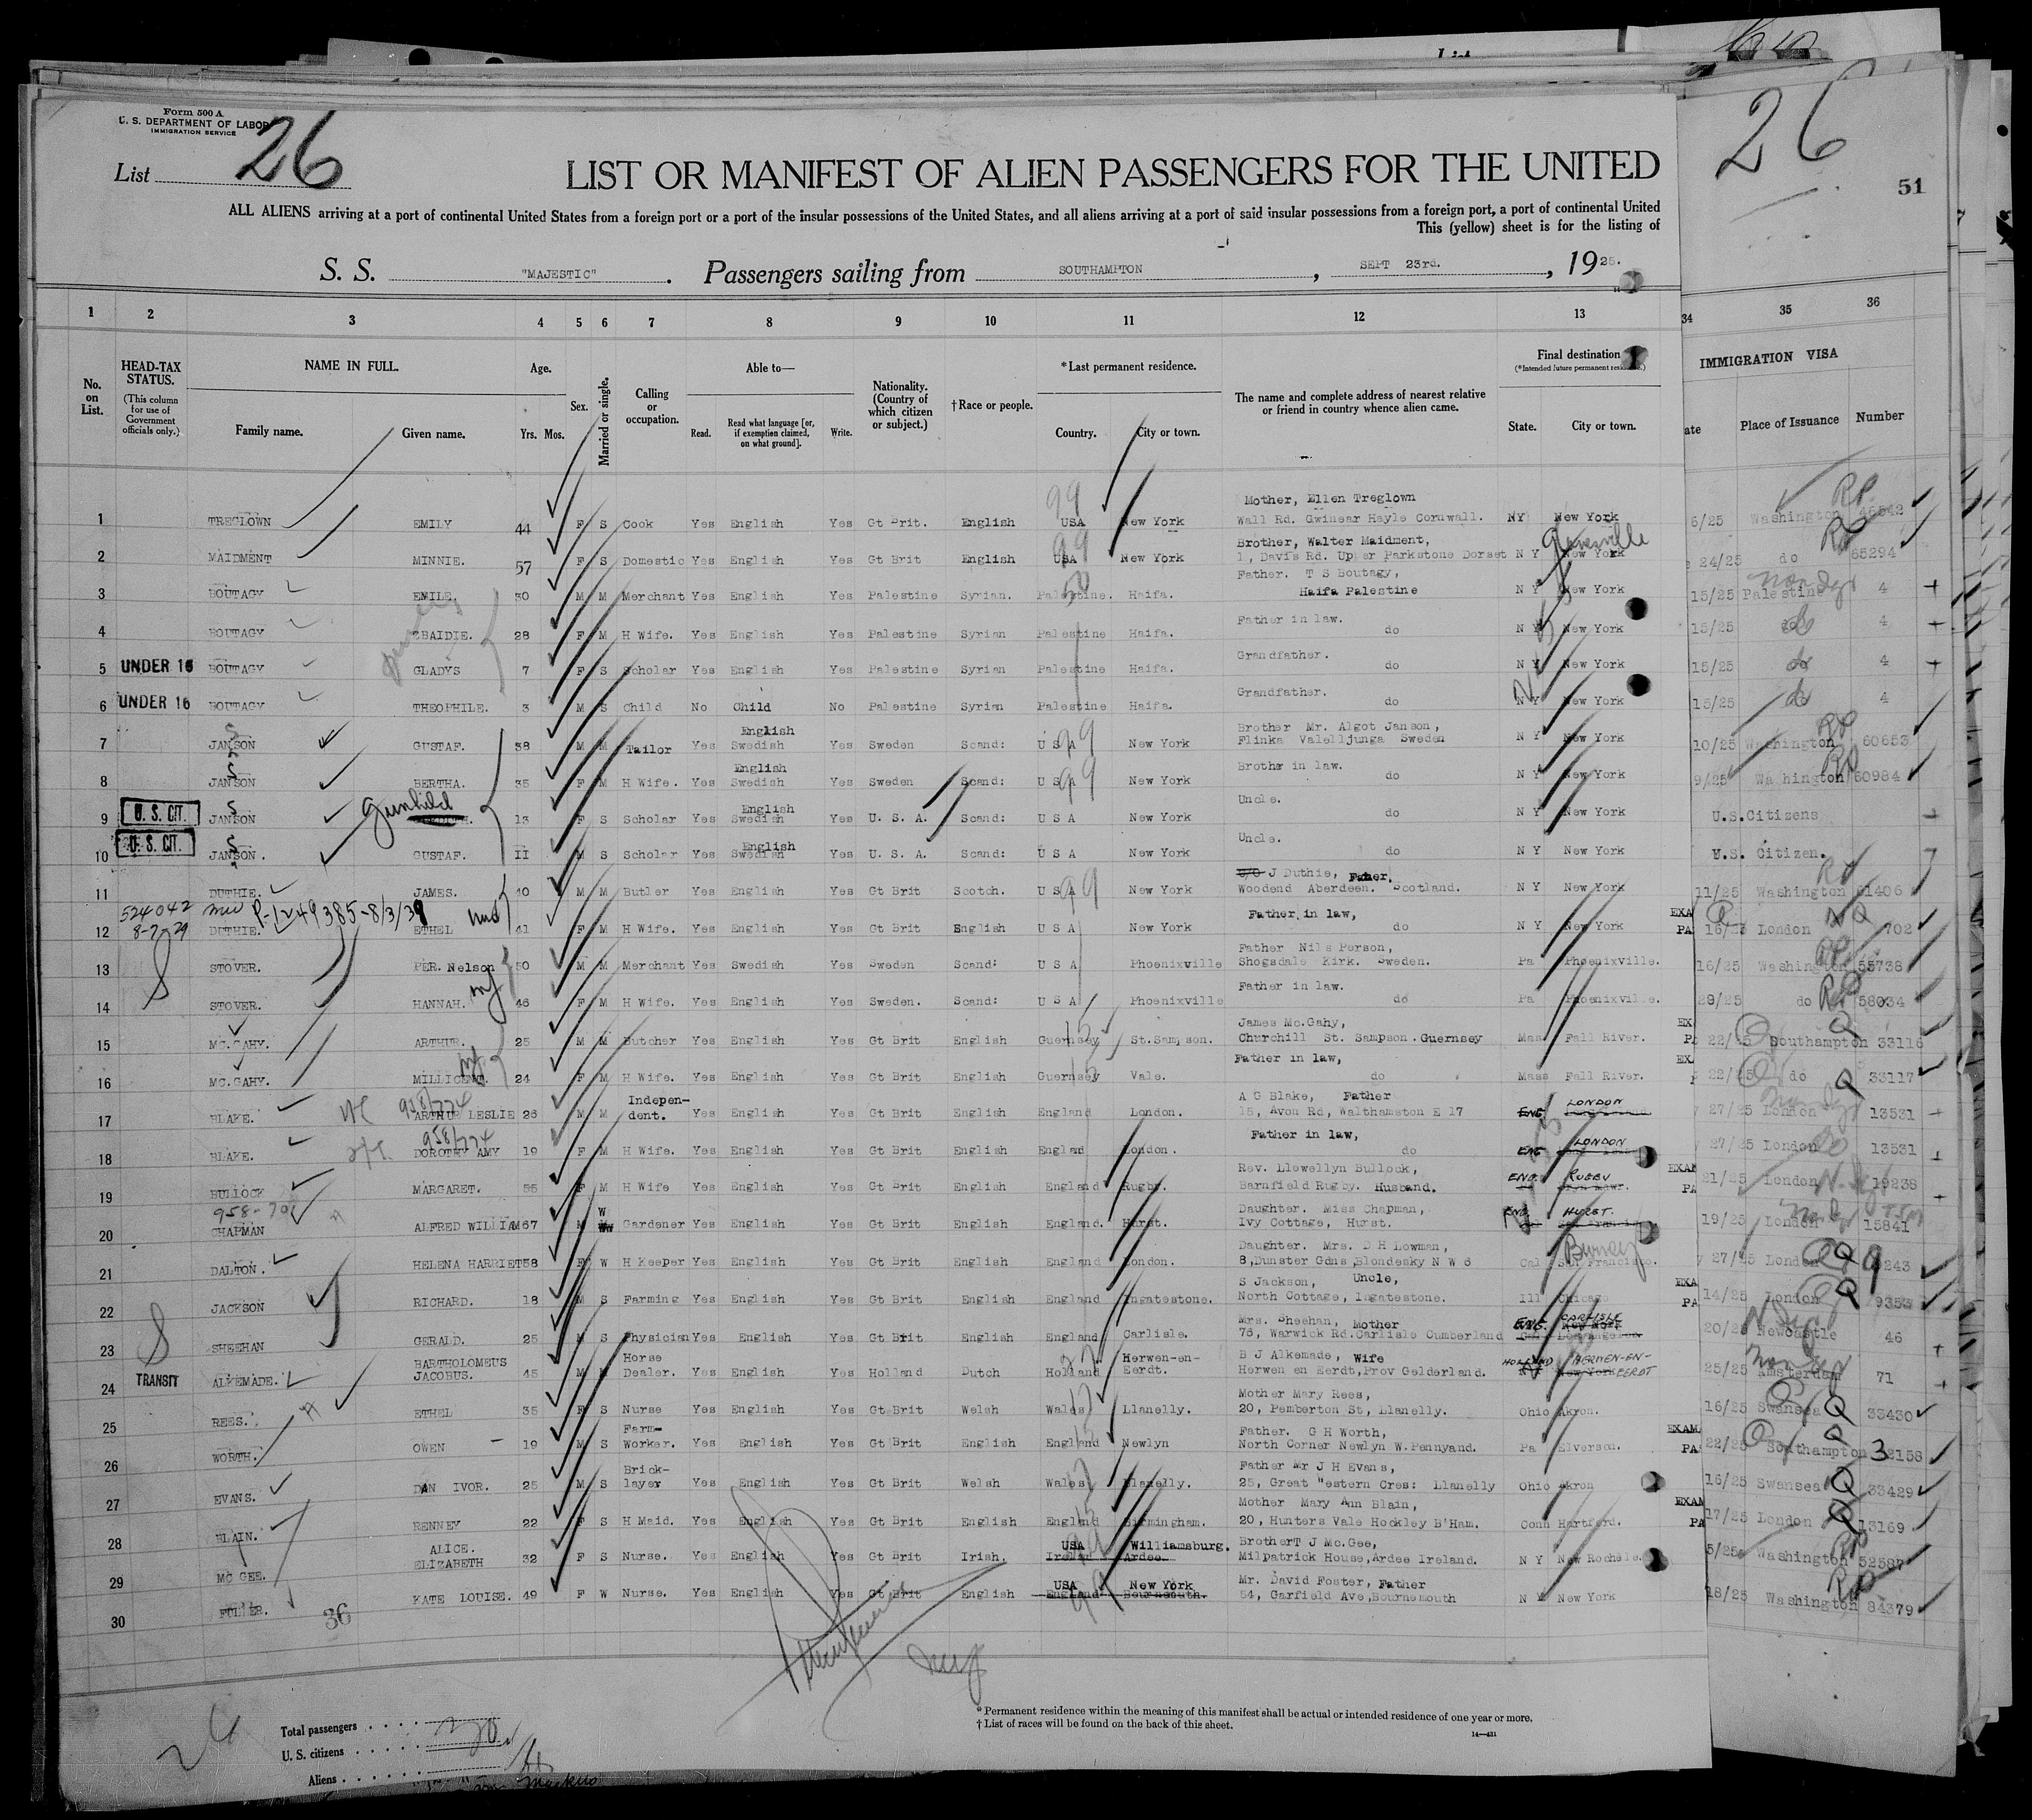 Form 500 A
U. S. DEPARTMENT OF LABOR
IMMIGRATION SERVICE
List 26
26
51
LIST OR MANIFEST OF ALIEN PASSENGERS FOR THE UNITED
ALL ALIENS arriving at a port of continental United States from a foreign port or a port of the insular possessions of the United States, and all aliens arriving at a port of said insular possessions from a foreign port, a port of continental United
This (yellow) sheet is for the listing of
S. S. "MAJESTIC". Passengers sailing from SOUTHAMPTON, SEPT 23rd., 1925.
1 2 3 4 5 6 7 8 9 10 11 12 13 34 35 36
No. on List.
HEAD-TAX STATUS. (This column for use of Government officials only.)
NAME IN FULL. Family name. Given name.
Age. Yrs. Mos.
Sex.
Married or single.
Calling or occupation.
Able to— Read. Read what language [or, if exemption claimed, on what ground]. Write.
Nationality. (Country of which citizen or subject.)
†Race or people.
*Last permanent residence. Country. City or town.
The name and complete address of nearest relative or friend in country whence alien came.
Final destination (*Intended future permanent residence.) State. City or town.
IMMIGRATION VISA
ate Place of Issuance Number
1 TREGLOWN EMILY 44 F S Cook Yes English Yes Gt Brit. English USA New York Mother, Ellen Treglown Wall Rd. Gwinear Hayle Cornwall. NY New York 6/25 Washington
2 MAIDMENT MINNIE. 57 F S Domestic Yes English Yes Gt Brit English USA New York Brother, Walter Maidment, 1, Davis Rd. Upper Parkstone Dorset N Y New York 24/25 do 65294
3 BOUTAGY EMILE. 30 M M Merchant Yes English Yes Palestine Syrian. Palestine. Haifa. Father. T S Boutagy, Haifa Palestine N Y New York 15/25 Palestine 4
4 BOUTAGY ZBAIDIE. 28 F M H Wife. Yes English Yes Palestine Syrian Palestine Haifa. Father in law. do N Y New York 15/25 do 4
5 UNDER 16 BOUTAGY GLADYS 7 F S Scholar Yes English Yes Palestine Syrian Palestine Haifa. Grandfather. do N Y New York 15/25 do 4
6 UNDER 16 BOUTAGY THEOPHILE. 3 M S Child No Child No Palestine Syrian Palestine Haifa. Grandfather. do N Y New York 15/25 do 4
7 JANSON GUSTAF. 38 M M Tailor Yes English Swedish Yes Sweden Scand: U S A New York Brother Mr. Algot Janson, Flinka Valelljunga Sweden N Y New York 10/25 Washington 60653
8 JANSON BERTHA. 35 F M H Wife. Yes English Swedish Yes Sweden Scand: U S A New York Brothr in law. do N Y New York 9/25 Wa hington 60984
9 U. S. CIT. JANSON Gunhild 13 F S Scholar Yes English Swedish Yes U. S. A. Scand: U S A New York Uncle. do N Y New York U.S.Citizens
10 U. S. CIT. JANSON. GUSTAF. II M S Scholar Yes English Swedish Yes U. S. A. Scand: U S A New York Uncle. do N Y New York U.S. Citizen.
11 DUTHIE. JAMES. 40 M M Butler Yes English Yes Gt Brit Scotch. U S A New York C/O J Duthie, Father, Woodend Aberdeen. Scotland. N Y New York 11/25 Washington 61406
524042 P-1249385-8/3/39
8-7-29
12 DUTHIE. ETHEL 41 F M H Wife. Yes English Yes Gt Brit English U S A New York Father in law, do N Y New York London 702
13 STOVER. PER. Nelson 50 M M Merchant Yes Swedish Yes Sweden Scand: U S A Phoenixville Father Nils Person, Shogsdale Kirk. Sweden. Pa Phoenixville. 16/25 Washington 55738
14 STOVER. HANNAH. 46 F M H Wife. Yes English Yes Sweden. Scand: U S A Phoenixville Father in law. do Pa Phoenixville. 29/25 do 58034
15 MC.GAHY. ARTHUR. 25 M M Butcher Yes English Yes Gt Brit English Guernsey St.Sam son. James Mc.Gahy, Churchill St. Sampson.Guernsey Mass Fall River. 22/25 Southampton 33116
16 MC.GAHY. MILLICENT. 24 F M H Wife. Yes English Yes Gt Brit English Guernsey Vale. Father in law, do Mass Fall River. 22/25 do 33117
17 BLAKE. 958/774 ARTHUR LESLIE 26 M M Indepen-dent. Yes English Yes Gt Brit English England London. A G Blake, Father 15, Avon Rd, Walthamston E 17 ENG LONDON 27/25 London 13531
18 BLAKE. 958/774 DOROTHY AMY 19 F M H Wife. Yes English Yes Gt Brit English England London. Father in law, do ENG LONDON 27/25 London 13531
19 BULLOCK MARGARET. 55 F M H Wife Yes English Yes Gt Brit English England Rugby. Rev. Llewellyn Bullock, Barnfield Rugby. Husband. ENG. RUGBY 21/25 London 19238
20 CHAPMAN ALFRED WILLIAM 67 M W Gardener Yes English Yes Gt Brit English England. Hurst. Daughter. Miss Chapman, Ivy Cottage, Hurst. ENG HURST. 19/25 London 15841
21 DALTON. HELENA HARRIET 58 F W H Keeper Yes English Yes Gt Brit English England London. Daughter. Mrs. D H Lowman, 8,Dunster Gdns,Blondesky N W 6 Cal San Francisco. 27/25 London
22 JACKSON RICHARD. 18 M S Farming Yes English Yes Gt Brit English England Ingatestone. S Jackson, Uncle, North Cottage, Ingatestone. Ill Chicago 14/25 London 9353
23 SHEEHAN GERALD. 25 M S Physician Yes English Yes Gt Brit English England Carlisle. Mrs. Sheehan, Mother 75, Warwick Rd.Carlisle Cumberland ENG. CARLISLE 20/25 Newcastle 46
24 TRANSIT ALKEMADE. BARTHOLOMEUS JACOBUS. 45 M M Horse Dealer. Yes English Yes Holland Dutch Holland Herwen-en-Eerdt. B J Alkemade, Wife Herwen en Eerdt,Prov Gelderland. HOLLAND HERWEN-EN-EERDT 25/25 Amsterdam 71
25 REES. ETHEL 35 F S Nurse Yes English Yes Gt Brit Welsh Wales Llanelly. Mother Mary Rees, 20, Pemberton St, Llanelly. Ohio Akron. 16/25 Swansea 33430
26 WORTH. OWEN 19 M S Farm-Worker. Yes English Yes Gt Brit English England Newlyn Father. G H Worth, North Corner Newlyn W.Pennyand. Pa Elverson. 22/25 Southampton 32158
27 EVANS. DAN IVOR. 25 M S Brick-layer Yes English Yes Gt Brit Welsh Wales Llanelly. Father Mr J H Evans, 25, Great "estern Cres: Llanelly Ohio Akron 16/25 Swansea 33429
28 BLAIN. RENNEY 22 F S H Maid. Yes English Yes Gt Brit English England Birmingham. Mother Mary Ann Blain, 20, Hunters Vale Hockley B'Ham. Conn Hartford. 17/25 London 13169
29 MC GEE. ALICE. ELIZABETH 32 F S Nurse. Yes English Yes Gt Brit Irish. USA Ireland Williamsburg. Ardee. BrotherT J Mc.Gee, Milpatrick House,Ardee Ireland. N Y New Rochele. 5/25 Washington 52587
30 FULLER. KATE LOUISE. 49 F W Nurse. Yes English Yes Gt Brit English USA England New York Bournemouth. Mr. David Foster, Father 54, Garfield Ave,Bournemouth N Y New York 18/25 Washington 84379
36
*Permanent residence within the meaning of this manifest shall be actual or intended residence of one year or more.
†List of races will be found on the back of this sheet.
14—431
Total passengers 30
U. S. citizens
Aliens